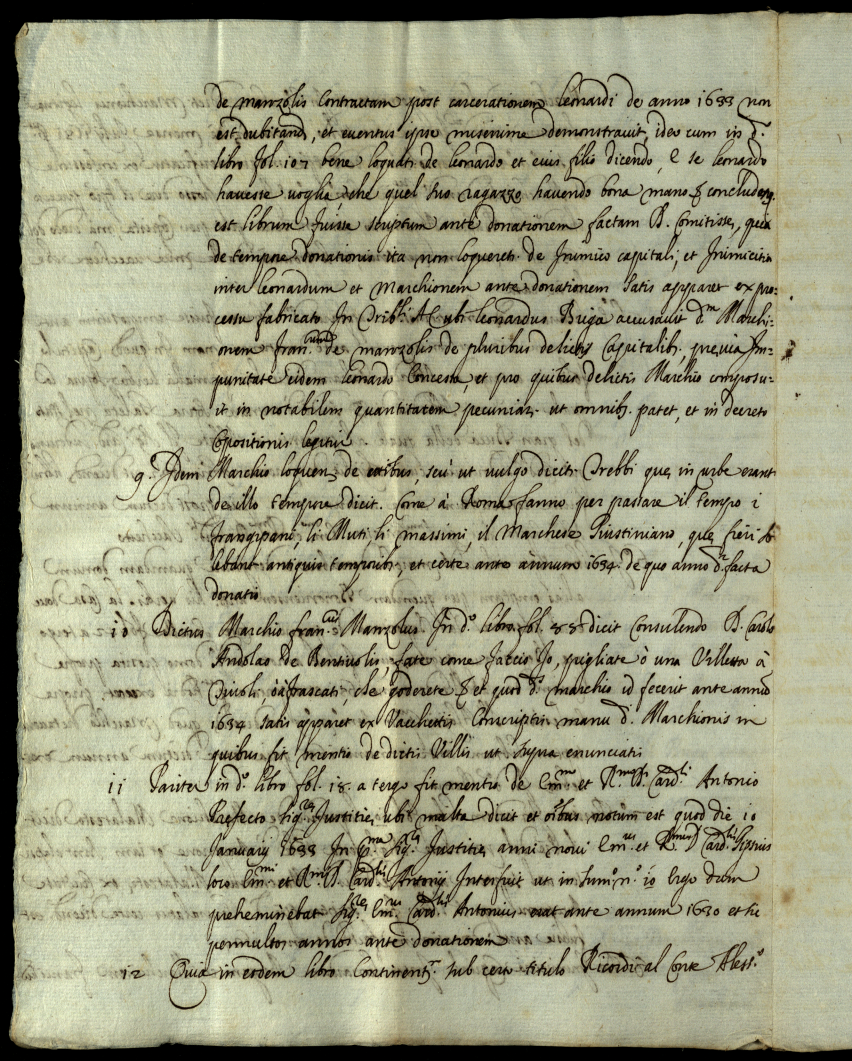 de manzolis Contractam post carcerationem leonardi de anno 1633 non
est dubitand, et eventus ipse miserrime demonstravit, ideo cum in d.º
libro fol. 107 bene loquatr de leonardo et eius filio dicendo, e se leonardo
havesse voglia che quel suo ragazzo havendo bona mano & concludendum
est librum fuisse scriptum ante donationem factam D. Comitisse, quia
de tempore donationis ita non loqueretr de Inimico capitali, et Inimicitia
inter leonardum et Marchionem ante donationem satis apparet ex pro:
cessu fabricato In Tribli AC ubi leonardus Briga accusavit d.m Marchi:
onem fran.cum de manzolis de pluribus delictis Capitalibs, previa Im:
punitate eidem leonardo Concessa et pro quibus delictis Marchio composu:
it in notabilem quantitatem pecuniar. ut omnibs patet, et in decreto
Copositionis legitur.
9. Idem Marchio loquens de seu ut vulgo dicitr Trebbi que in urbe erant
de illo tempore dicit. Come à Roma fanno per passare il tempo i
frangipani, li Muti li massimi, il Marchese Giustiniano, que fieri so
lebant antiquis temporibs, et certe ante annum 1634. de quo anno d.r facta
donatio
10 Dictus Marchio fran.cus Manzolus In d.º libro fol. 88 dicit Consulendo D. Carolo
Andolao de Bentivolis, fate come faccio Io, pigliate ò una Villetta à
Tivoli, ò à frascati, che goderete & et quod d.s marchio id fecerit ante annũ
1634 satis apparet ex Vacchettis Conscriptis manu d. Marchionis in
quibus fit mentio de dictis Villis ut supra enunciatis
11 Pariter in d.º libro fol. 18. a tergo fit mentio de Em.mo et R.mo D. Card.li Antonio
Prefecto sig.re Justitie, ubi multa dicit et oībus notum est quod die 10
Januarij 1633 In p.ma sig.ra Justitie anni novi Em.us et R.mus D Card.lis
loco Em.mi et R.mi D. Card.lis Antonij Interfuit ut in sum.º n.º 10 Ergo dum
preheminebat sig.re Em.us Card.lis Antonius erat ante annum 1630 et sic
permultos annos ante donationem
12 Quia in eodem libro Continentr sub certo titulo Ricordi al Conte Aless.º